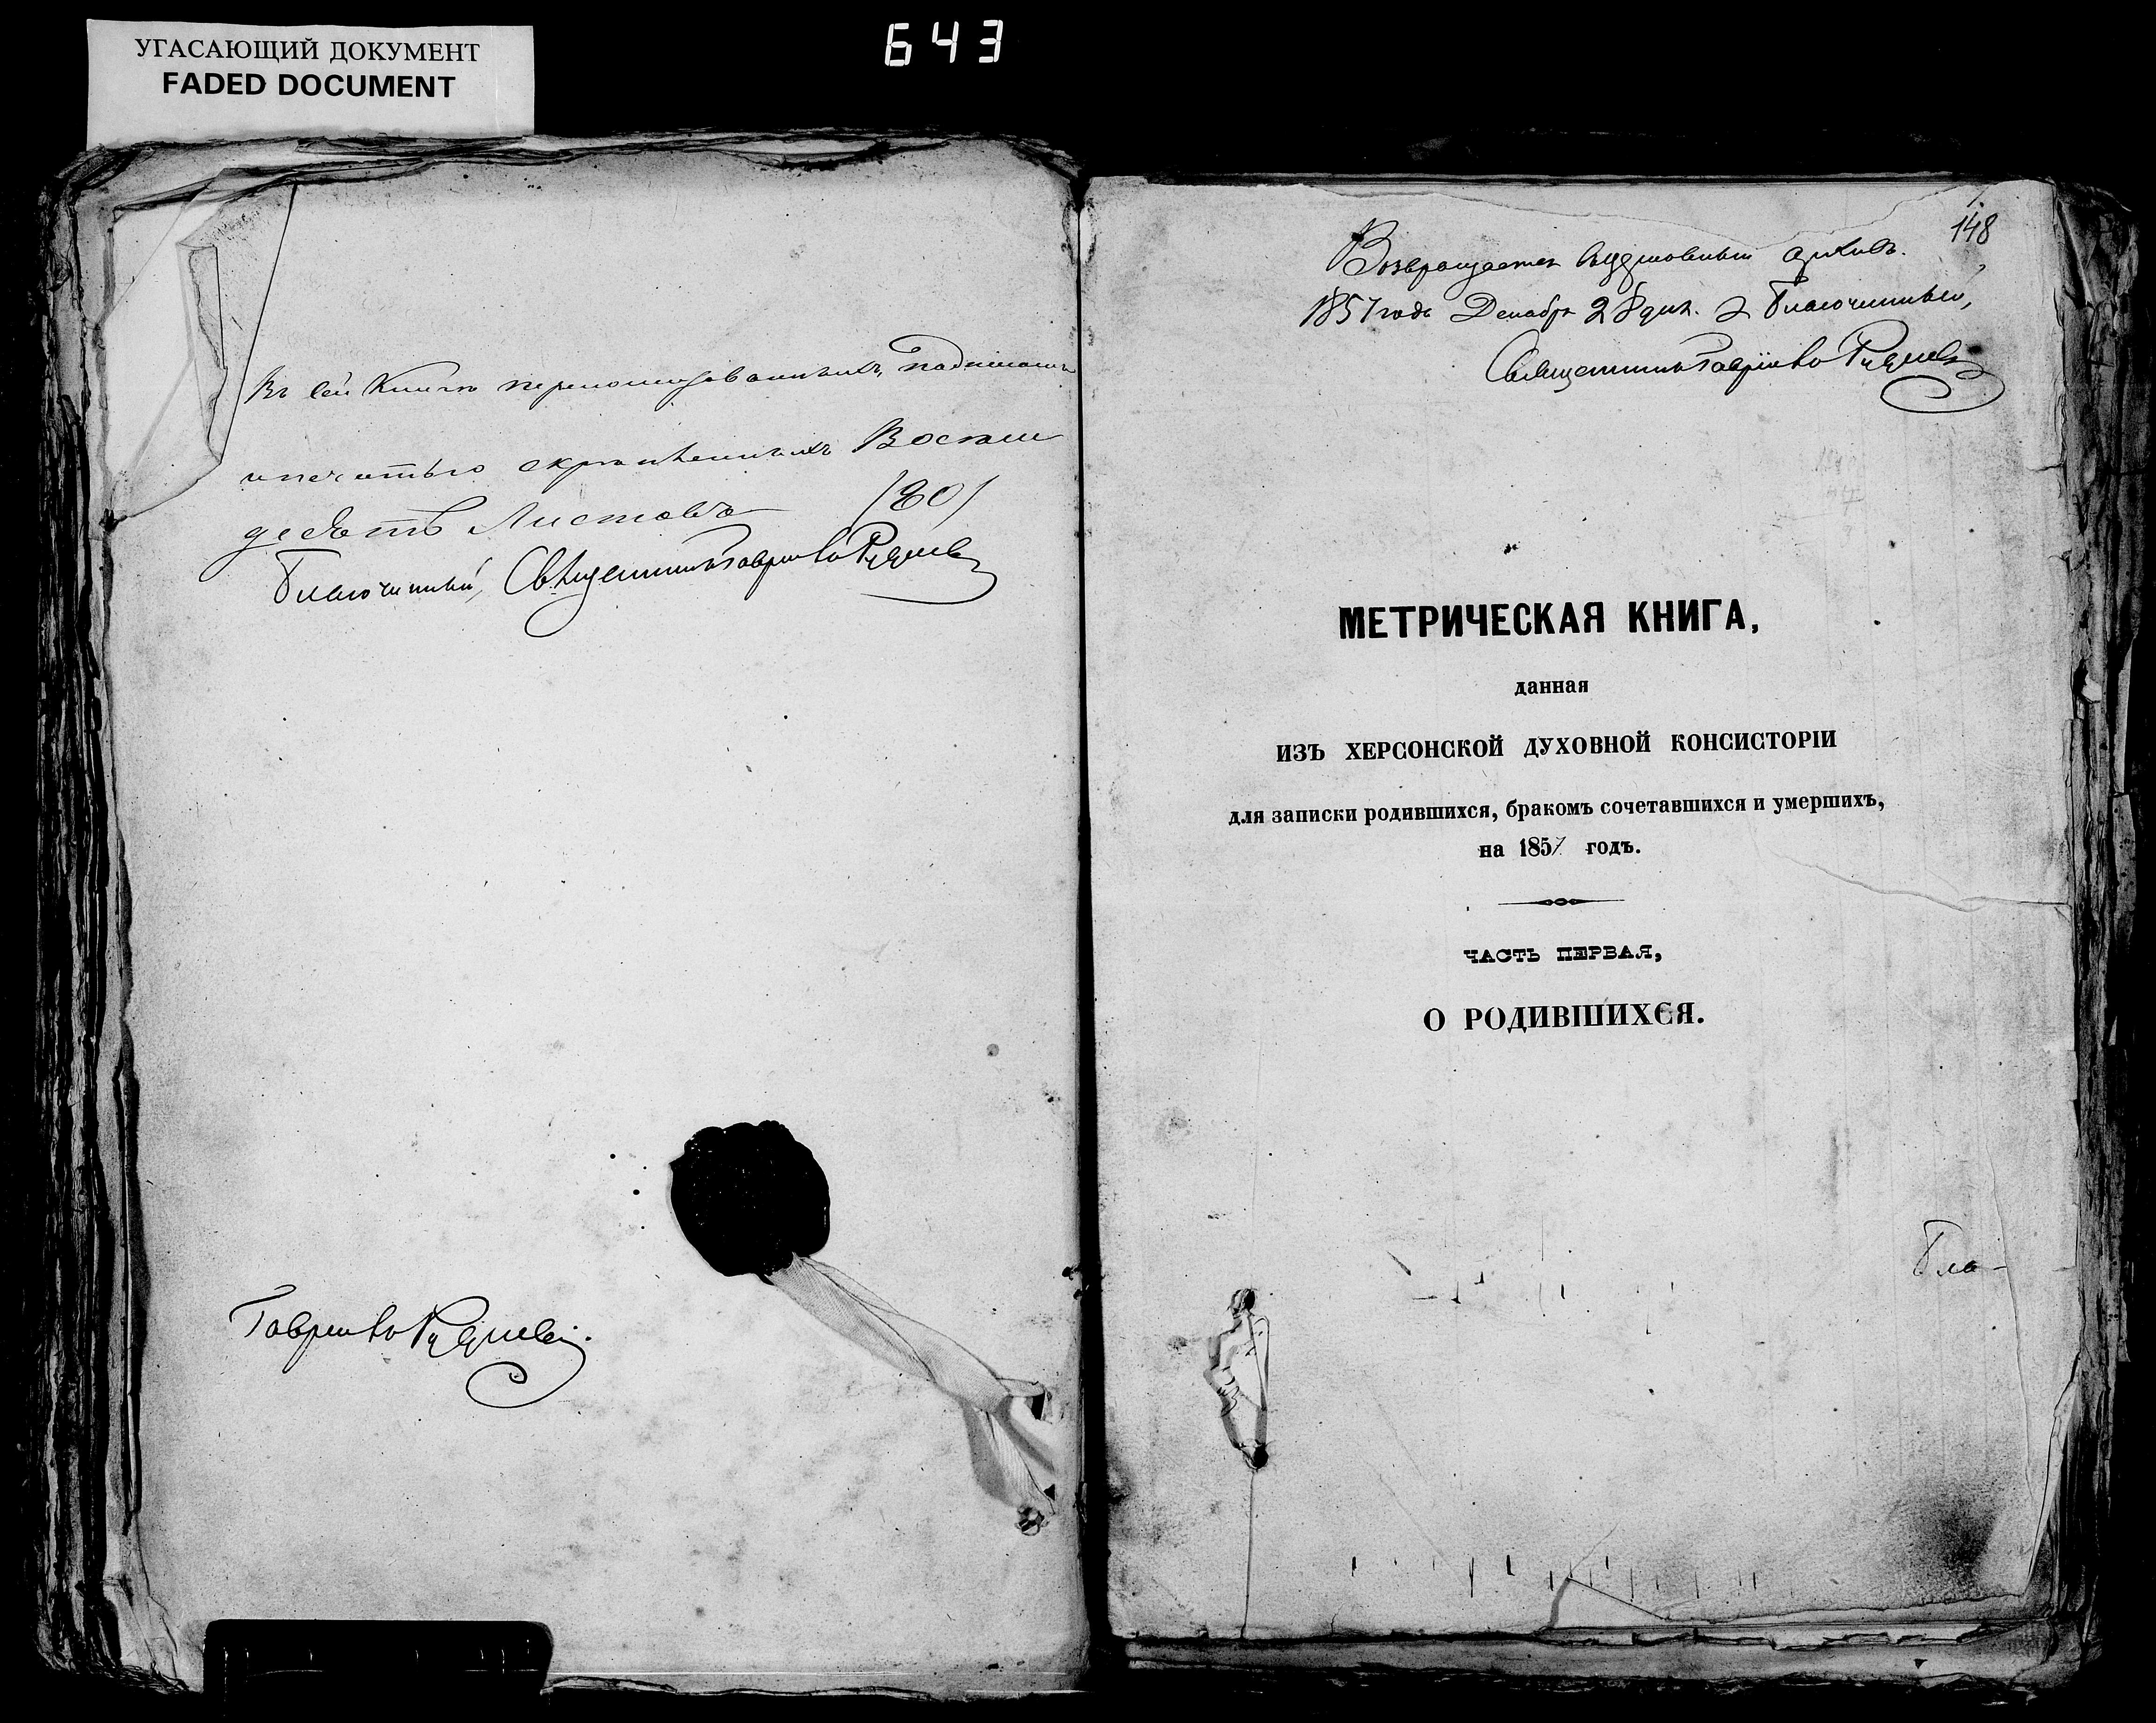 УГАСАЮЩИЙ ДОКУМЕНТ
FADED DOCUMENT
643
Въ сей Книгѣ перенумерованныхъ, подписью
и печатью скрѣпленныхъ Восемь
десятъ Листовъ /80/
Благочинный, Священникъ Гавріилъ
Гавріилъ
148
Возвращается архивъ.
1857 года Декабря 28 дня. Благочинный,
Священникъ Гавріилъ
МЕТРИЧЕСКАЯ КНИГА,
данная
ИЗЪ ХЕРСОНСКОЙ ДУХОВНОЙ КОНСИСТОРІИ
для записки родившихся, бракомъ сочетавшихся и умершихъ,
на 1857 годъ.
ЧАСТЬ ПЕРВАЯ,
О РОДИВШИХСЯ.
Бла-